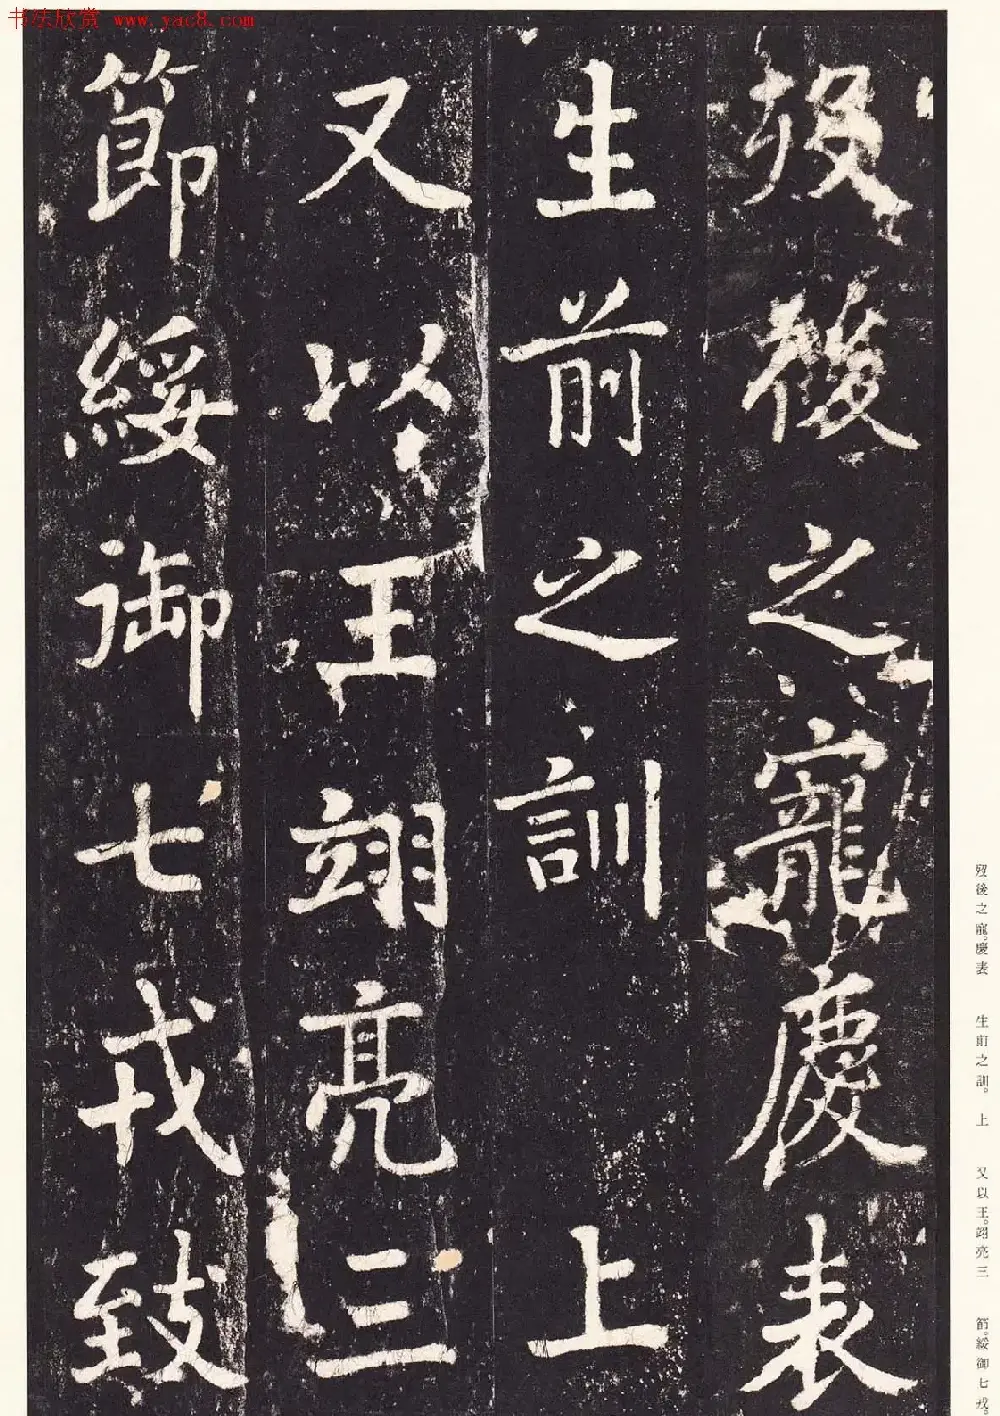 书法欣赏 www.yac8.com
歿後之寵慶表
生前之訓　上
又以王翊亮三
節綏御七戎致
歿後之寵。慶表　生前之訓。　上　又以王。翊亮三　節。綏御七戎。